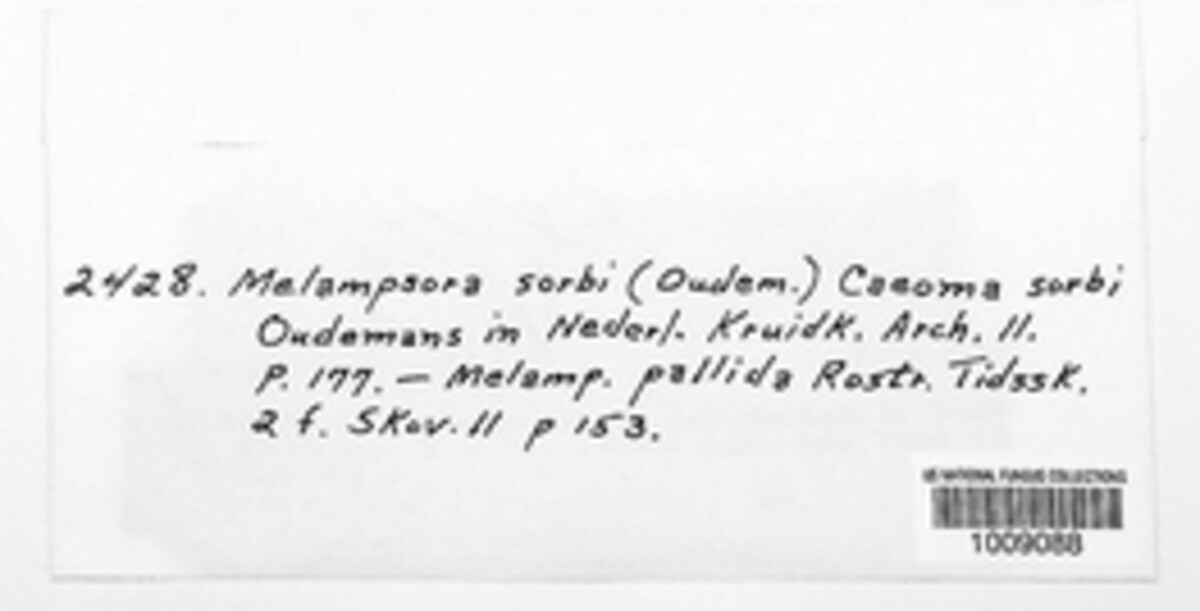 2428. Melampsora sorbi (Oudem.) Caeoma sorbi
Oudemans in Nederl. Kruidk. Arch. II.
P. 177. — Melamp. pallida Rostr. Tidssk.
2 f. Skov. II p 153.
US NATIONAL FUNGUS COLLECTIONS
1009088